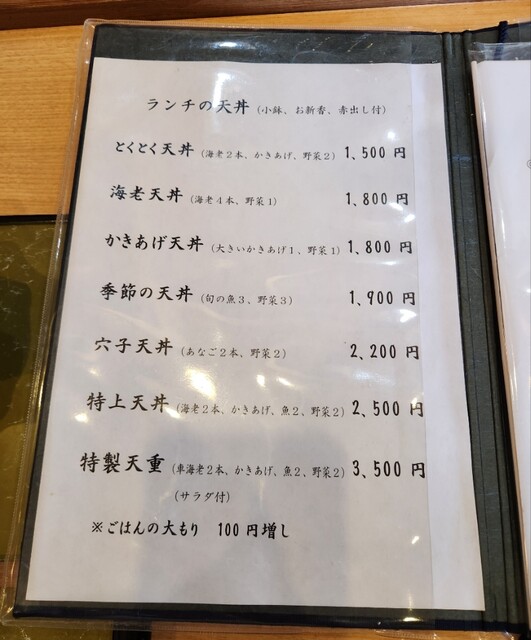 ランチの天丼（小鉢、お新香、赤出し付）
とくとく天丼（海老２本、かきあげ、野菜２）1,500 円
海老天丼（海老４本、野菜１）1,800 円
かきあげ天丼（大きいかきあげ１、野菜１）1,800 円
季節の天丼（旬の魚３、野菜３）1,900 円
穴子天丼（あなご２本、野菜２）2,200 円
特上天丼（海老２本、かきあげ、魚２、野菜２）2,500 円
特製天重（車海老２本、かきあげ、魚２、野菜２）3,500 円
（サラダ付）
※ごはんの大もり　100 円増し